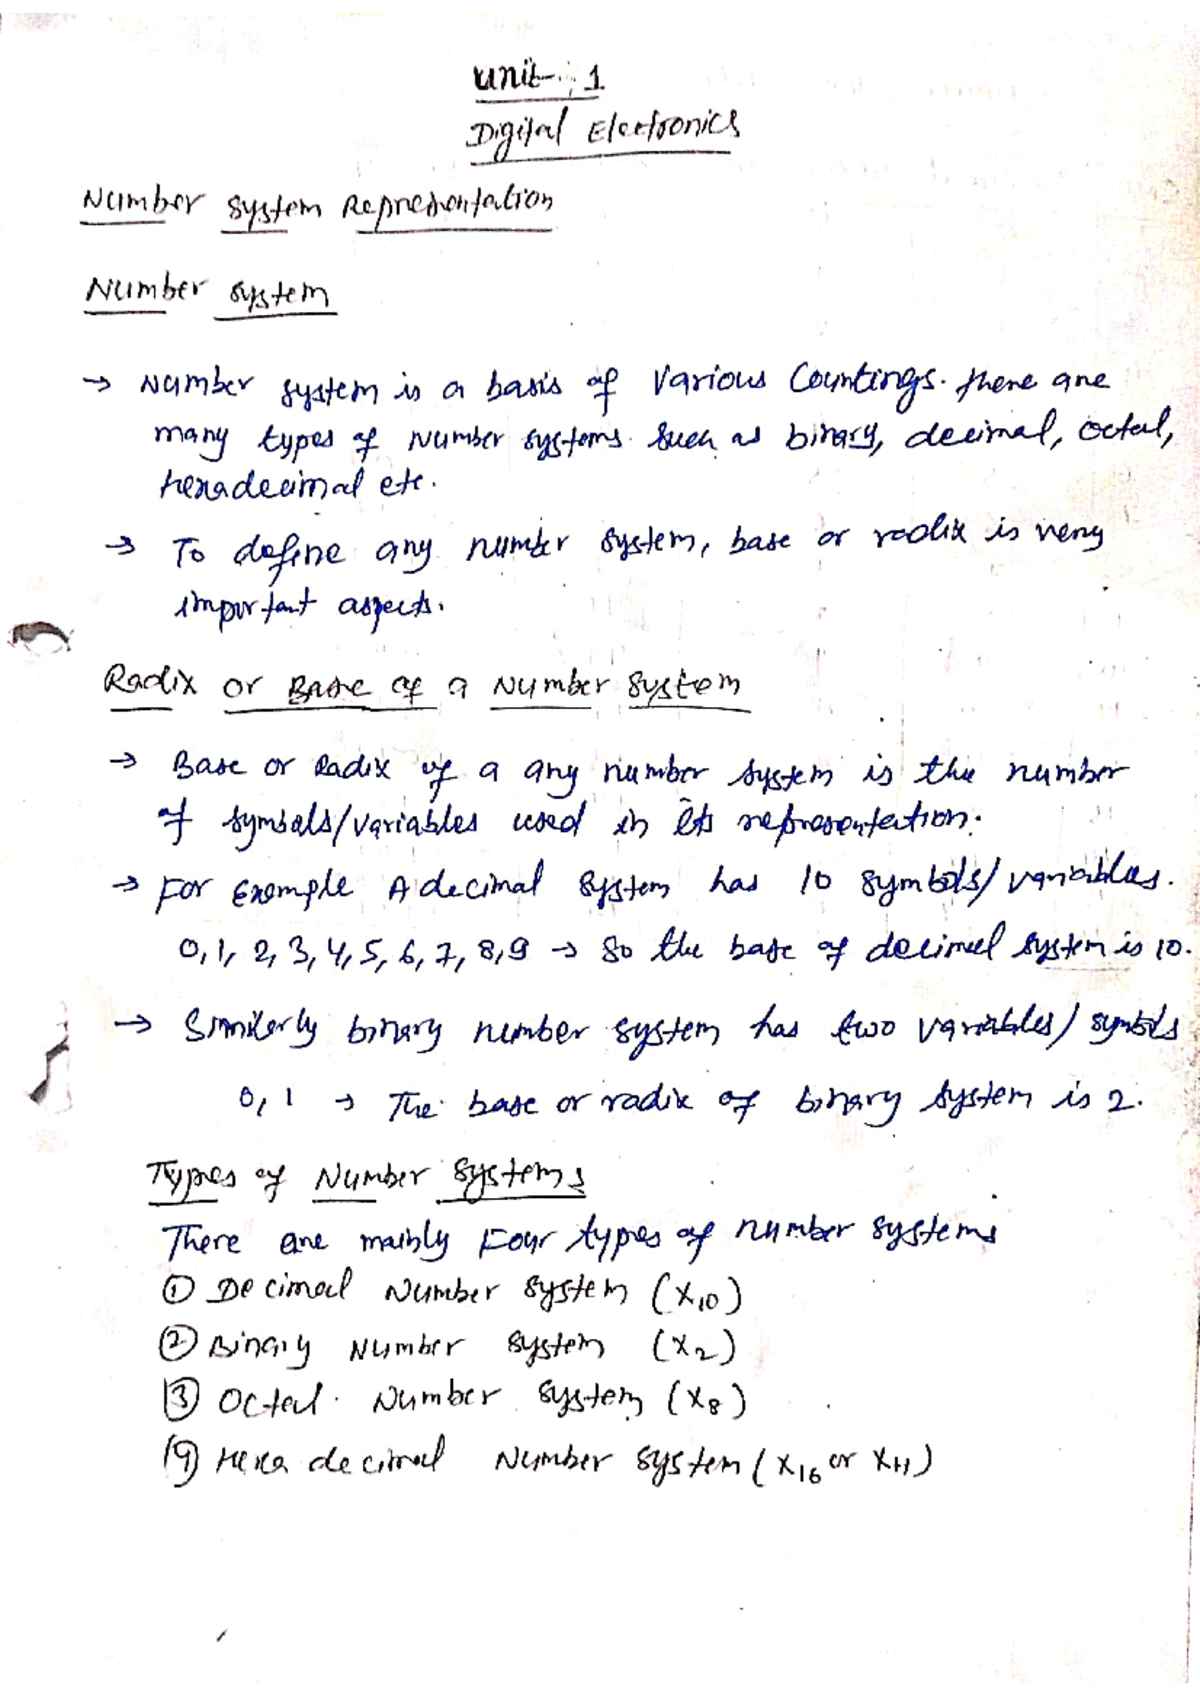 Unit : 1
Digital Electronics
Number System Representation
Number System
→ Number system is a basis of various Countings. there are
many types of Number systems such as binary, decimal, octal,
hexadecimal etc.
→ To define any number system, base or radix is very
important aspects.
Radix or Base of a Number System
→ Base or Radix of a any number system is the number
of symbols/variables used in its representation.
→ For Example A decimal system has 10 symbols/variables.
0, 1, 2, 3, 4, 5, 6, 7, 8, 9 → So the base of decimal system is 10.
→ Similarly binary number system has two variables/symbols
0, 1 → The base or radix of binary system is 2.
Types of Number Systems
There are mainly Four types of number systems
① Decimal Number System (X₁₀)
② Binary Number System (X₂)
③ Octal Number System (X₈)
④ Hexa decimal Number System (X₁₆ or X_H)